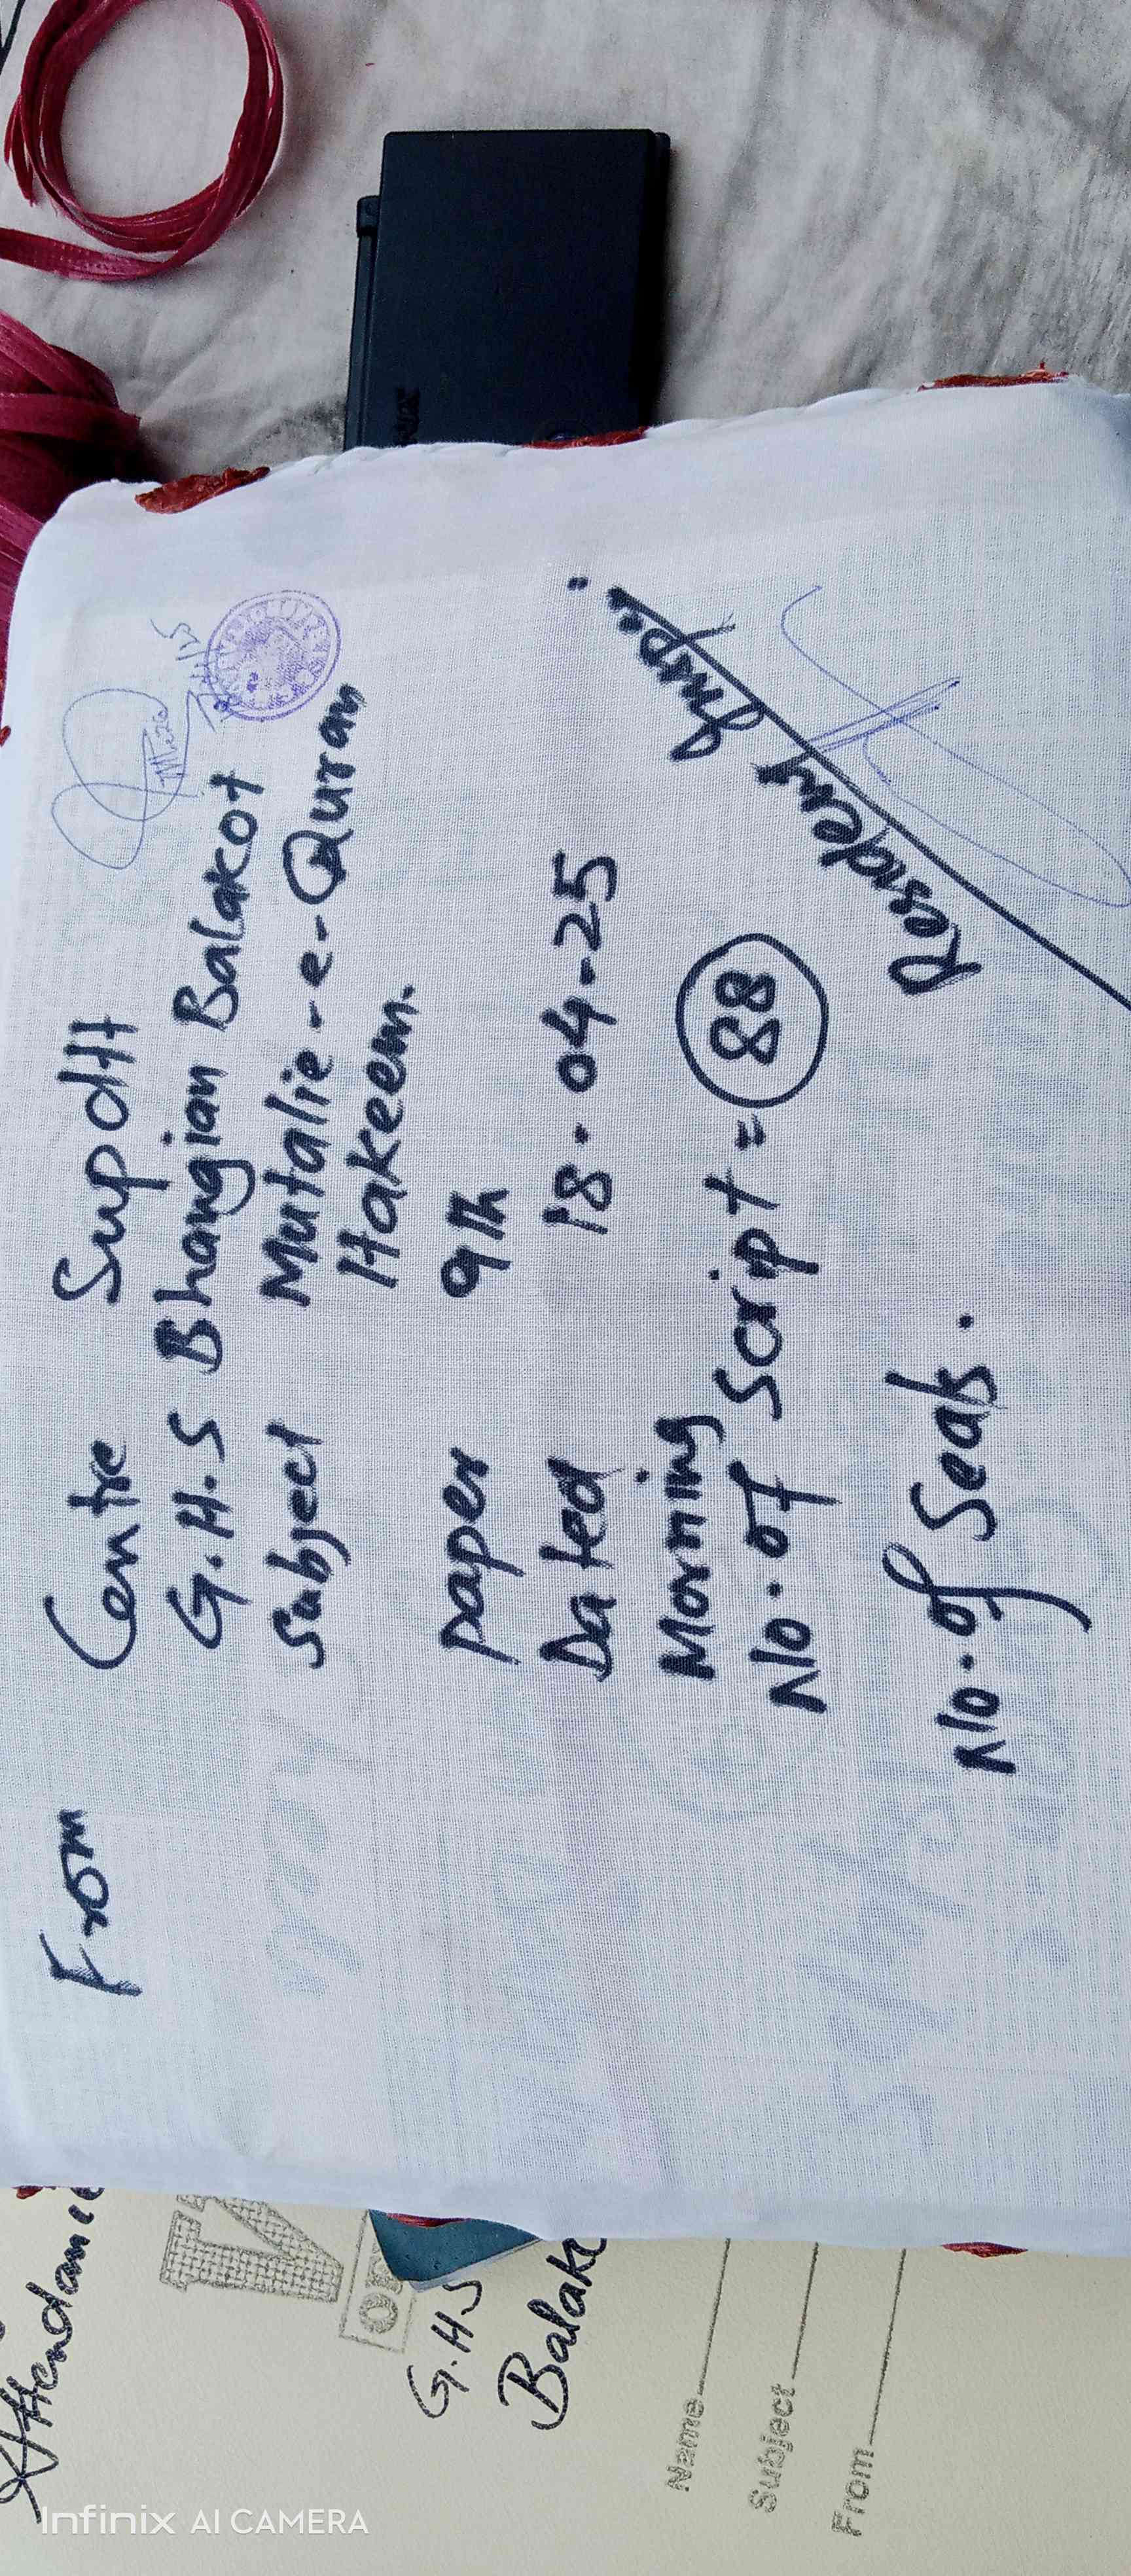 From Centre Supdtt
G.H.S Bhangian Balakot
Subject Mutalie-e-Quran
Hakeem.
paper 9th
Dated 18-04-25
Morning
No. of Script = 88
No. of Seals.
Resident Inspe
G.H.S
Balak
Name
Subject
From
Infinix AI CAMERA